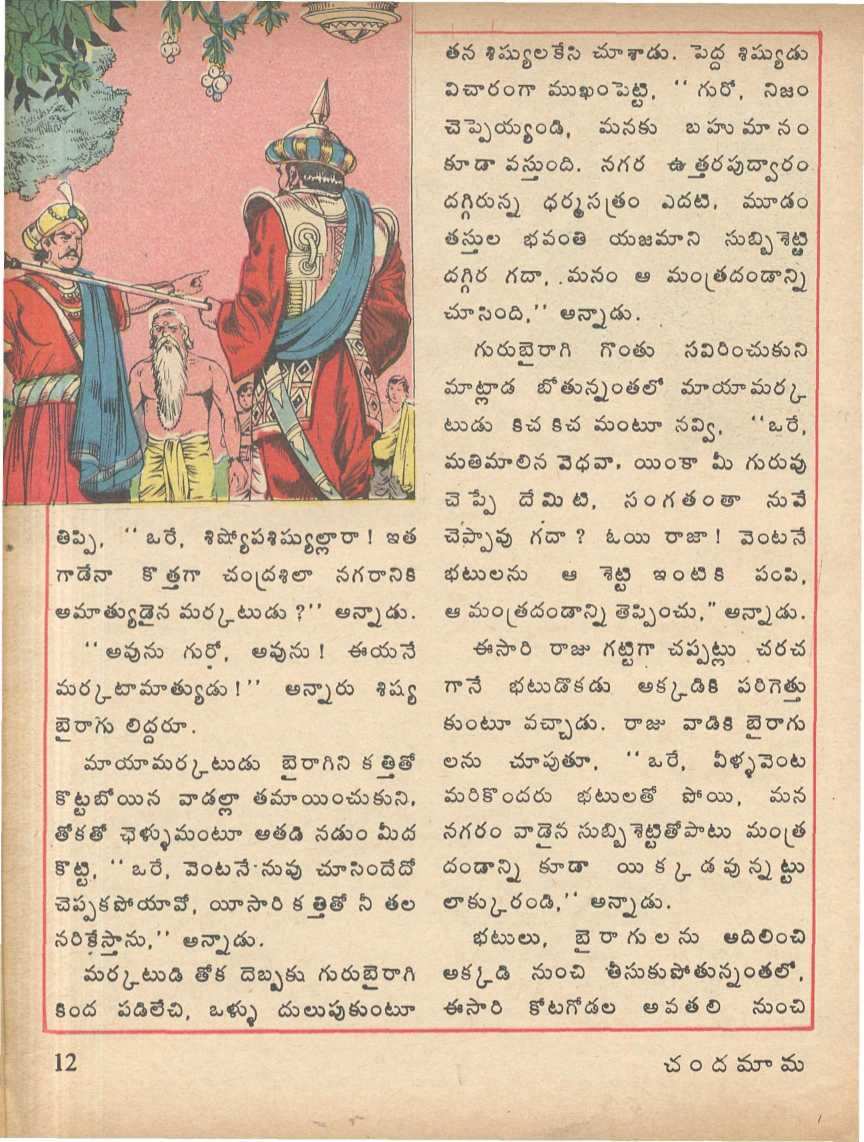 తిప్పి, ‘‘ ఒరే, శిష్యోపశిష్యుల్లారా ! ఇత
గాడేనా కొత్తగా చంద్రశిలా నగరానికి
అమాత్యుడైన మర్కటుడు ?’’ అన్నాడు.
‘‘అవును గురో, అవును ! ఈయనే
మర్కటామాత్యుడు !’’ అన్నారు శిష్య
బైరాగు లిద్దరూ.
మాయామర్కటుడు బైరాగిని కత్తితో
కొట్టబోయిన వాడల్లా తమాయించుకుని,
తోకతో ఛెళ్ళుమంటూ అతడి నడుం మీద
కొట్టి, ‘‘ ఒరే, వెంటనే నువు చూసిందేదో
చెప్పకపోయావో, యీసారి కత్తితో నీ తల
నరికేస్తాను,’’ అన్నాడు.
మర్కటుడి తోక దెబ్బకు గురుబైరాగి
కింద పడిలేచి, ఒళ్ళు దులుపుకుంటూ
తన శిష్యులకేసి చూశాడు. పెద్ద శిష్యుడు
విచారంగా ముఖంపెట్టి, ‘‘ గురో, నిజం
చెప్పెయ్యండి, మనకు బహుమానం
కూడా వస్తుంది. నగర ఉత్తరపుద్వారం
దగ్గిరున్న ధర్మసత్రం ఎదటి, మూడం
తస్తుల భవంతి యజమాని సుబ్బిశెట్టి
దగ్గిర గదా, మనం ఆ మంత్రదండాన్ని
చూసింది,’’ అన్నాడు.
గురుబైరాగి గొంతు సవిరించుకుని
మాట్లాడ బోతున్నంతలో మాయామర్క
టుడు కిచకిచ మంటూ నవ్వి, ‘‘ఒరే,
మతిమాలిన వెధవా, యింకా మీ గురువు
చెప్పే దేమిటి, సంగతంతా నువే
చెప్పావు గదా ? ఓయి రాజా ! వెంటనే
భటులను ఆ శెట్టి ఇంటికి పంపి,
ఆ మంత్రదండాన్ని తెప్పించు,’’ అన్నాడు.
ఈసారి రాజు గట్టిగా చప్పట్లు చరచ
గానే భటుడొకడు అక్కడికి పరిగెత్తు
కుంటూ వచ్చాడు. రాజు వాడికి బైరాగు
లను చూపుతూ, ‘‘ ఒరే, వీళ్ళవెంట
మరికొందరు భటులతో పోయి, మన
నగరం వాడైన సుబ్బిశెట్టితోపాటు మంత్ర
దండాన్ని కూడా యిక్కడ వున్నట్టు
లాక్కురండి,’’ అన్నాడు.
భటులు, బైరాగులను అదిలించి
అక్కడి నుంచి తీసుకుపోతున్నంతలో,
ఈసారి కోటగోడల అవతలి నుంచి
12
చందమామ